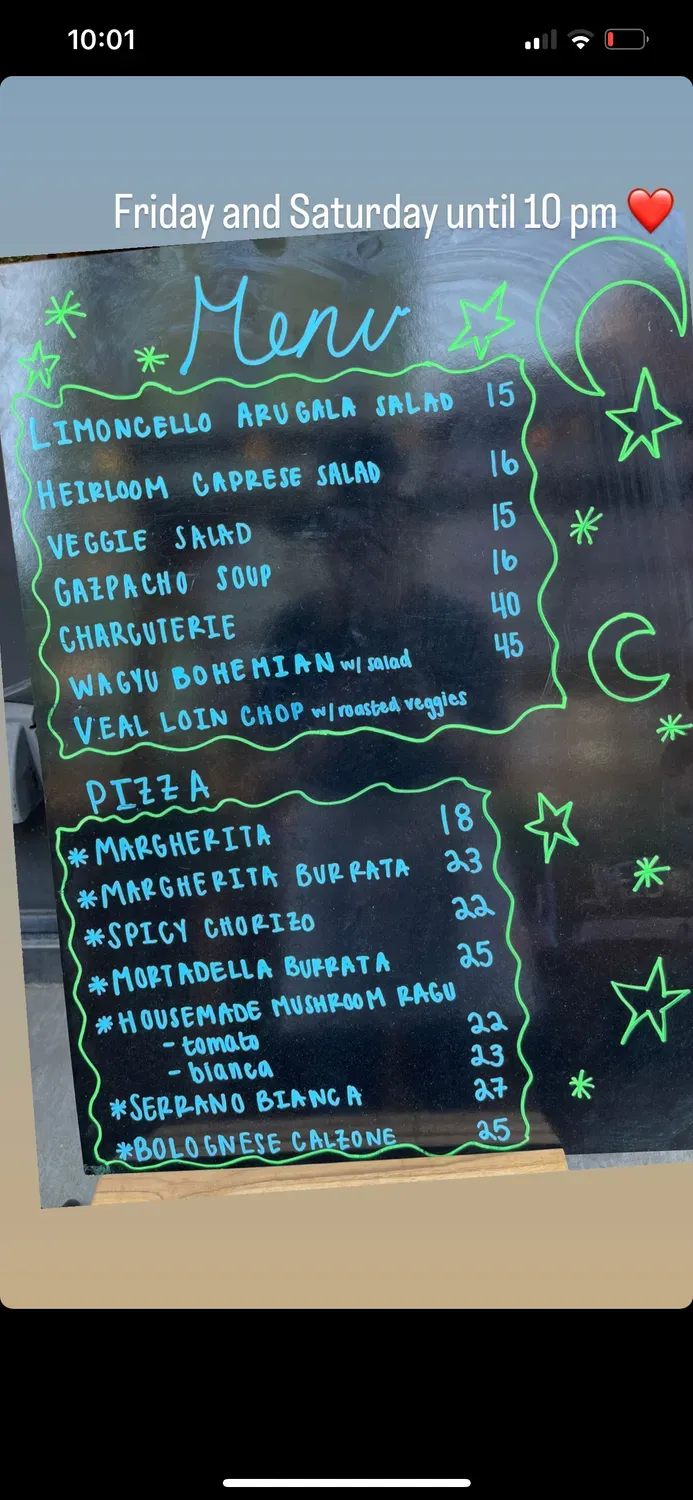 10:01
Friday and Saturday until 10 pm ❤️
Menu
LIMONCELLO ARUGALA SALAD 15
HEIRLOOM CAPRESE SALAD 16
VEGGIE SALAD 15
GAZPACHO SOUP 16
CHARCUTERIE 40
WAGYU BOHEMIAN w/ salad 45
VEAL LOIN CHOP w/ roasted veggies
PIZZA
* MARGHERITA 18
* MARGHERITA BURRATA 23
* SPICY CHORIZO 22
* MORTADELLA BURRATA 25
* HOUSEMADE MUSHROOM RAGU
- tomato 22
- bianca 23
* SERRANO BIANCA 27
* BOLOGNESE CALZONE 25